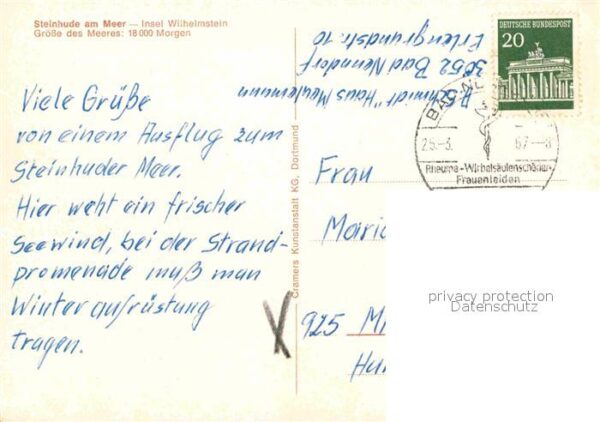 Steinhude am Meer — Insel Wilhelmstein
Größe des Meeres: 18 000 Morgen
Viele Grüße
von einem Ausflug zum
Steinhuder Meer.
Hier weht ein frischer
Seewind, bei der Strand-
promenade muß man
Winteraufrüstung
tragen.
Cramers Kunstanstalt KG, Dortmund
Schmidt "Haus Meulemann
3052 Bad Nenndorf
Erlengrundstr. 10
DEUTSCHE BUNDESPOST
20
BAD
25.-3. 67.--8
Rheuma-Wirbelsäulenschäden-
Frauenleiden
Frau
Maria
925 M
Hu
privacy protection
Datenschutz